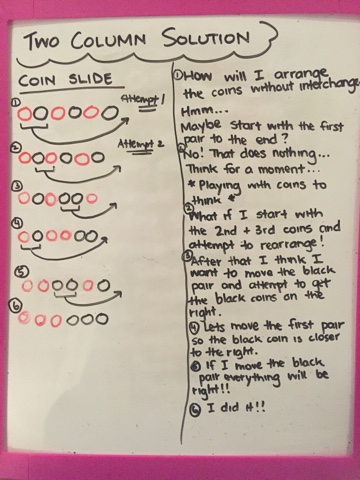 TWO COLUMN SOLUTION
COIN SLIDE
① Attempt 1
② Attempt 2
③
④
⑤
⑥
① How will I arrange
the coins without interchange
Hmm...
Maybe start with the first
pair to the end?
No! That does nothing...
Think for a moment...
* Playing with coins to
think *
② What if I start with
the 2nd + 3rd coins and
attempt to rearrange!
③ After that I think I
want to move the black
pair and attempt to get
the black coins on the
right.
④ Lets move the first pair
so the black coin is closer
to the right.
⑤ If I move the black
pair everything will be
right!!
⑥ I did it!!